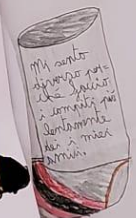 Mi sento
diverso per=
ché faccio
i compiti più
lentamente
dei miei
amici.